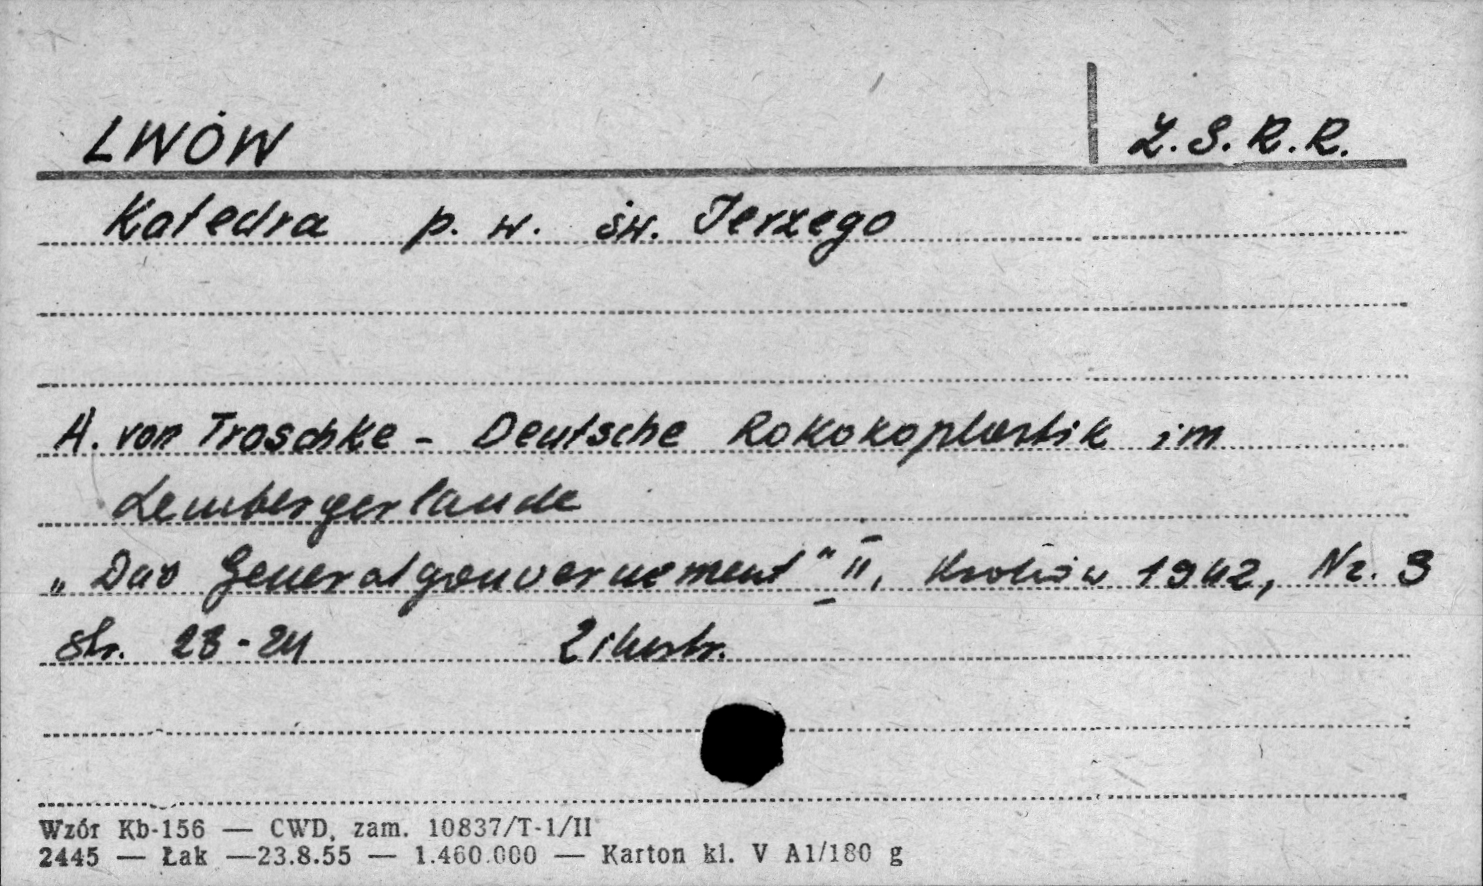 LWÓW Z.S.R.R.
Katedra p. w. św. Jerzego
A. von Troschke - Deutsche Rokokoplastik im
Lembergerlande
„Das Generalgouvernement" II, Kraków 1942, Nr. 3
str. 23-24 2 ilustr.
Wzór Kb-156 — CWD, zam. 10837/T-1/II
2445 — Łak —23.8.55 — 1.460.000 — Karton kl. V A1/180 g